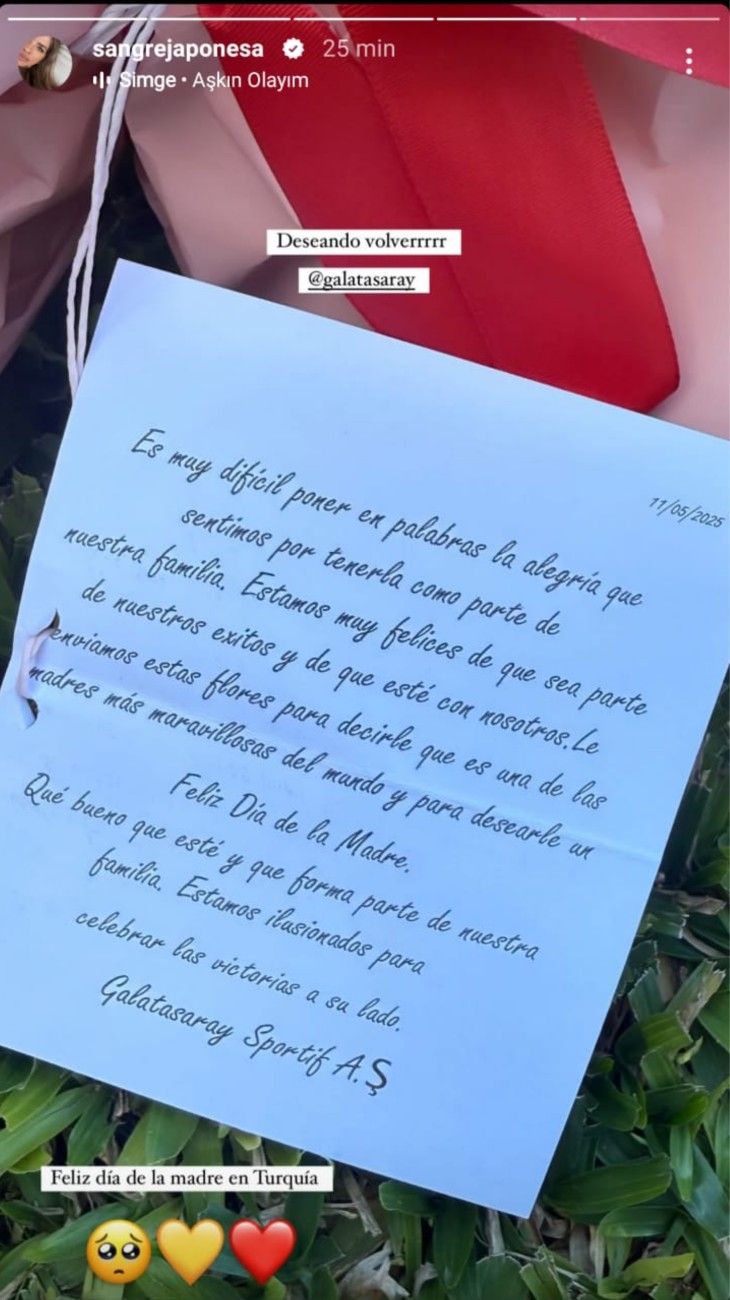 sangrejaponesa 25 min
Simge • Aşkın Olayım
Deseando volverrrrr
@galatasaray
11/05/2025
Es muy difícil poner en palabras la alegría que
sentimos por tenerla como parte de
nuestra familia. Estamos muy felices de que sea parte
de nuestros exitos y de que esté con nosotros.Le
enviamos estas flores para decirle que es una de las
madres más maravillosas del mundo y para desearle un
Feliz Día de la Madre.
Qué bueno que esté y que forma parte de nuestra
familia. Estamos ilusionados para
celebrar las victorias a su lado.
Galatasaray Sportif A.Ş
Feliz día de la madre en Turquía